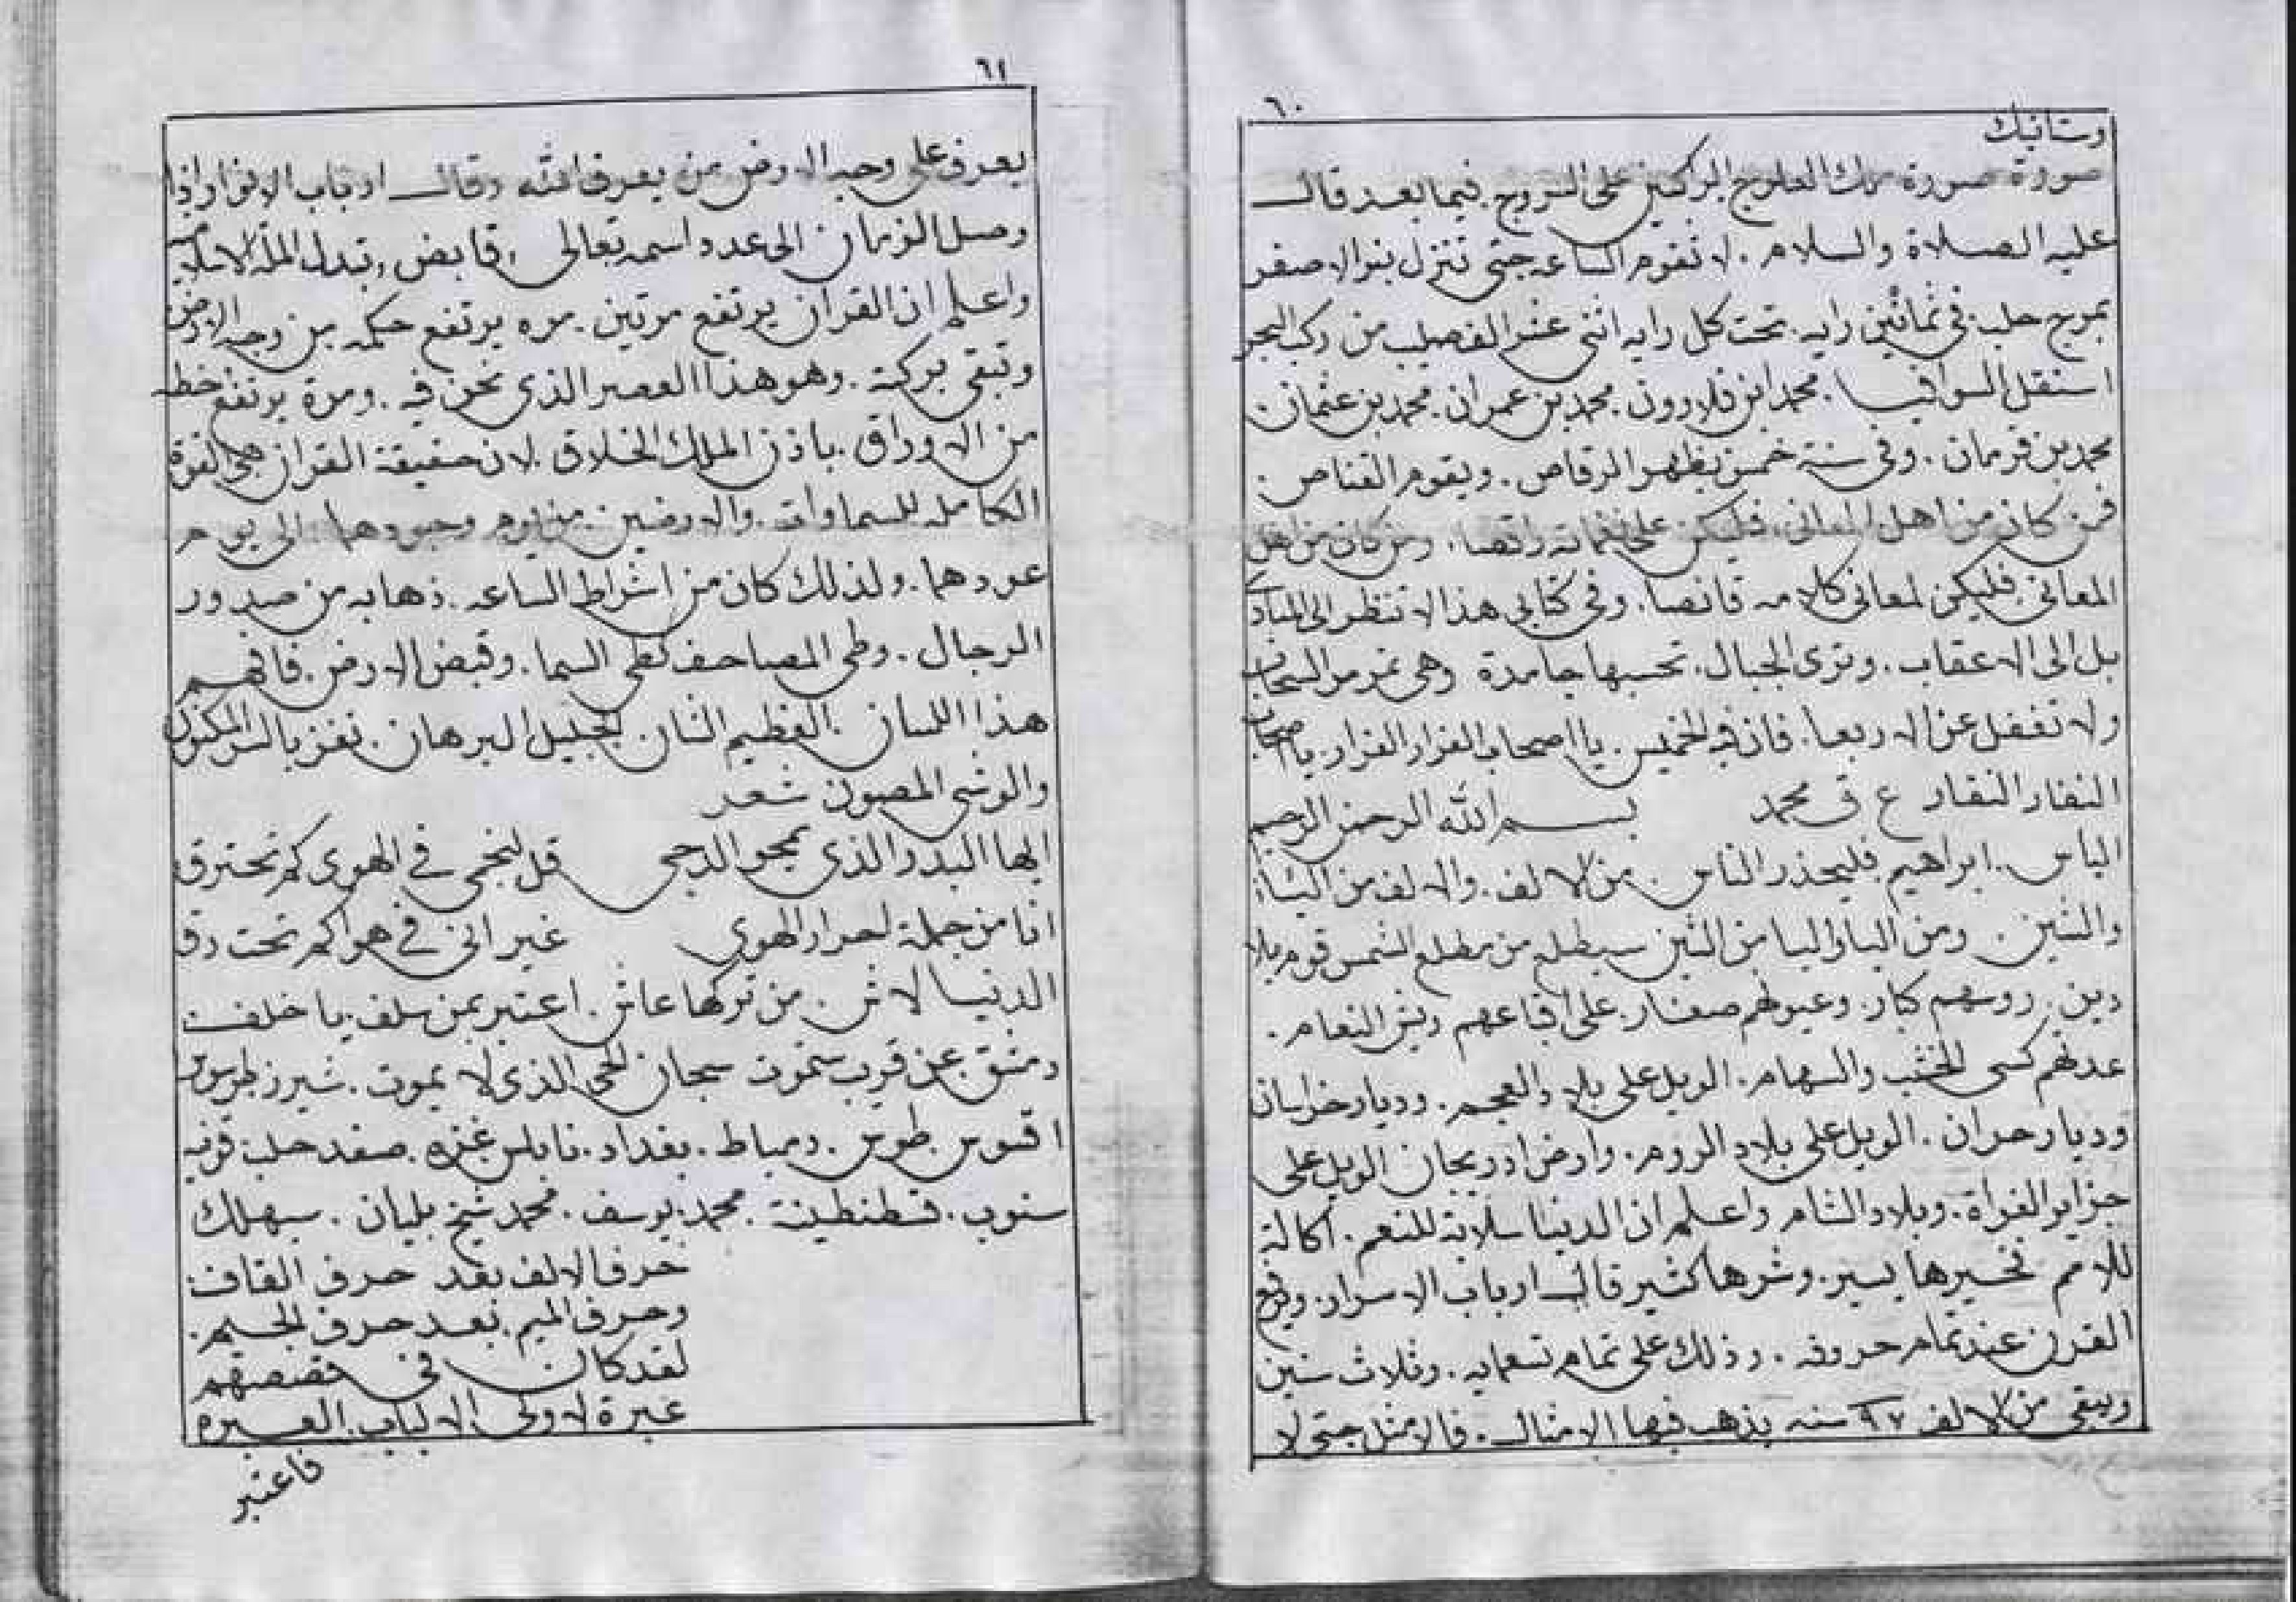 ٦٠
وستاتيك
صورة صورة ملك العلوج المركبين على السروج. فيما بعد قال
عليه الصلاة والسلام. لا تقوم الساعه حتى تنزل بنو الاصفر
بمرج حلب. في ثمانين رايه. تحت كل رايه اثنى عشر الف صليب من ركب البحر
استقل السواقيا. محمد ابن قلاروون. محمد بن عمران. محمد بن عثمان.
محمد بن قرمان. وفي سنة خمس يظهر الرقاص. ويقوم القناص.
فمن كان من اهل المغانى. فليكن على نغماته راقصا. ومن كان من اهل
المعانى فليكن لمعانى كلامه قانصا. وفى كتابى هذا لا تنظر الى المباد
بل الى الاعقاب. وترى الجبال. تحسبها جامدة وهى تمر مر السحاب
ولا تغفل عن الاربعا. فان فيه الخميس. يا اصحاب الفرار الفرار. يا اصحاب
النفار النفار ع ق محمد بسم الله الرحمن الرحيم
الياس. ابراهيم فليحذر الناس. من الالف. والالف من الشا
والشين. ومن الباوالبا من الشين سيطلع من مطلع الشمس قوم بلا
دين. روسهم كبار. وعيونهم صغار. على اقباعهم ريش النعام.
عدتهم كسى الخشب والسهام. الويل على بلاد والعجم. وديار خراسان
وديار حران. الويل على بلاد الروم. وارض ادربجان الويل على
جزاير الفراة. وبلاد الشام واعلم ان الدينا سلابة للنعم. اكالة
للامم نخيرها يسير. وشرها كثير قال ارباب الاسرار. وقع
القرن عند تمام حروفه. وذلك على تمام تسعمايه. وثلاث سنين
ويبقى من الالف ٩٧ سنه يذهب فيها الامثال. فالامثل حتى لا
٦١
يعرف على وجه الارض من يعرف الله وقال ارباب الانوار اذا
وصل الزمان الى عدد اسمه تعالى, قابض, تبدل الملة الاسلام
واعلم ان القران يرتفع مرتين. مره يرتفع حكمه من وجه الارض
وتبقى بركتة. وهو هذا العصر الذى نحن فيه. ومرة يرتفع خطه
من الاوراق. باذن الملك الخلاق. لان حقيقة القران هى القوة
الكامله للسماوات. والارضين. من يوم وجودهما. الى يوم
عودهما. ولذلك كان من اشراط الساعه. ذهابه من صدور
الرجال. وطى المصاحف كطى السما. وقبض الارض. فافهم
هذا اللسان. العظيم الشان. الجليل البرهان. تفز بالسر المكنون
والوشى المصون شعر
ايها البدر الذى يمحو الدجى قل لنجمى في الهوى كم تحترق
انا من جملة احرار الهوى غير انى في هواكم تحت رق
الدنيا لاش. من تركها عاش. اعتبر بمن سلف. يا خلف
دمشق. عن قرب ستموت سبحان الحى الذى لا يموت. شيرز طرسوس
اقسوس. طوس. دمياط. بغداد. نابلس غزه. صفد حلب قونيه
سنوب. قسطنطينة. محمد. يوسف. محمد شيخ بليان. سيهلك
حرف الالف بعد حرف القاف
وحرف الميم. بعد حرف الجيم.
لقد كان فى قصصهم
عبرة لاولى الالباب. العبره
فاعتبر